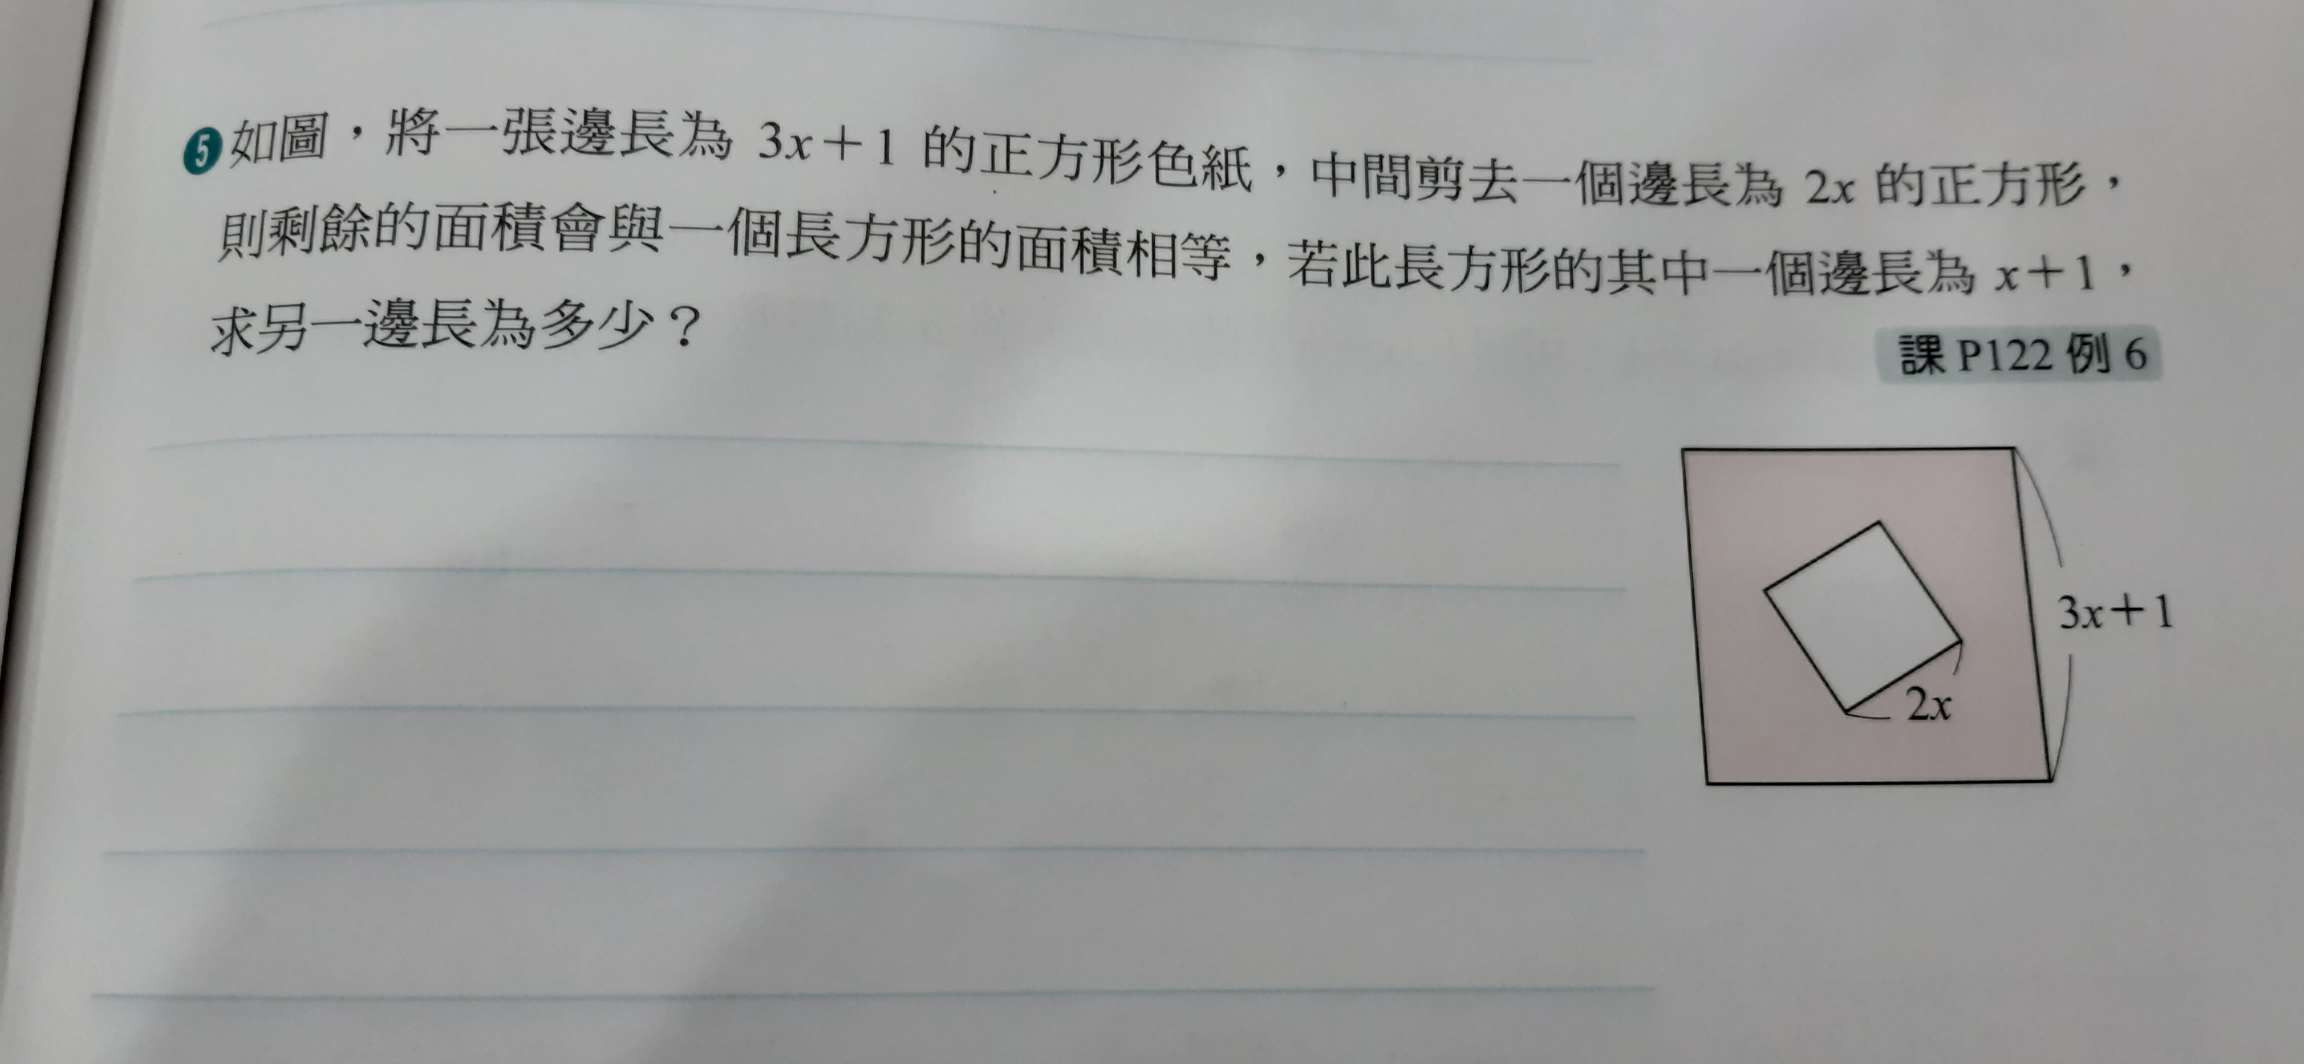 5 如圖，將一張邊長為 3x＋1 的正方形色紙，中間剪去一個邊長為 2x 的正方形，
則剩餘的面積會與一個長方形的面積相等，若此長方形的其中一個邊長為 x＋1，
求另一邊長為多少？
課 P122 例 6
3x＋1
2x